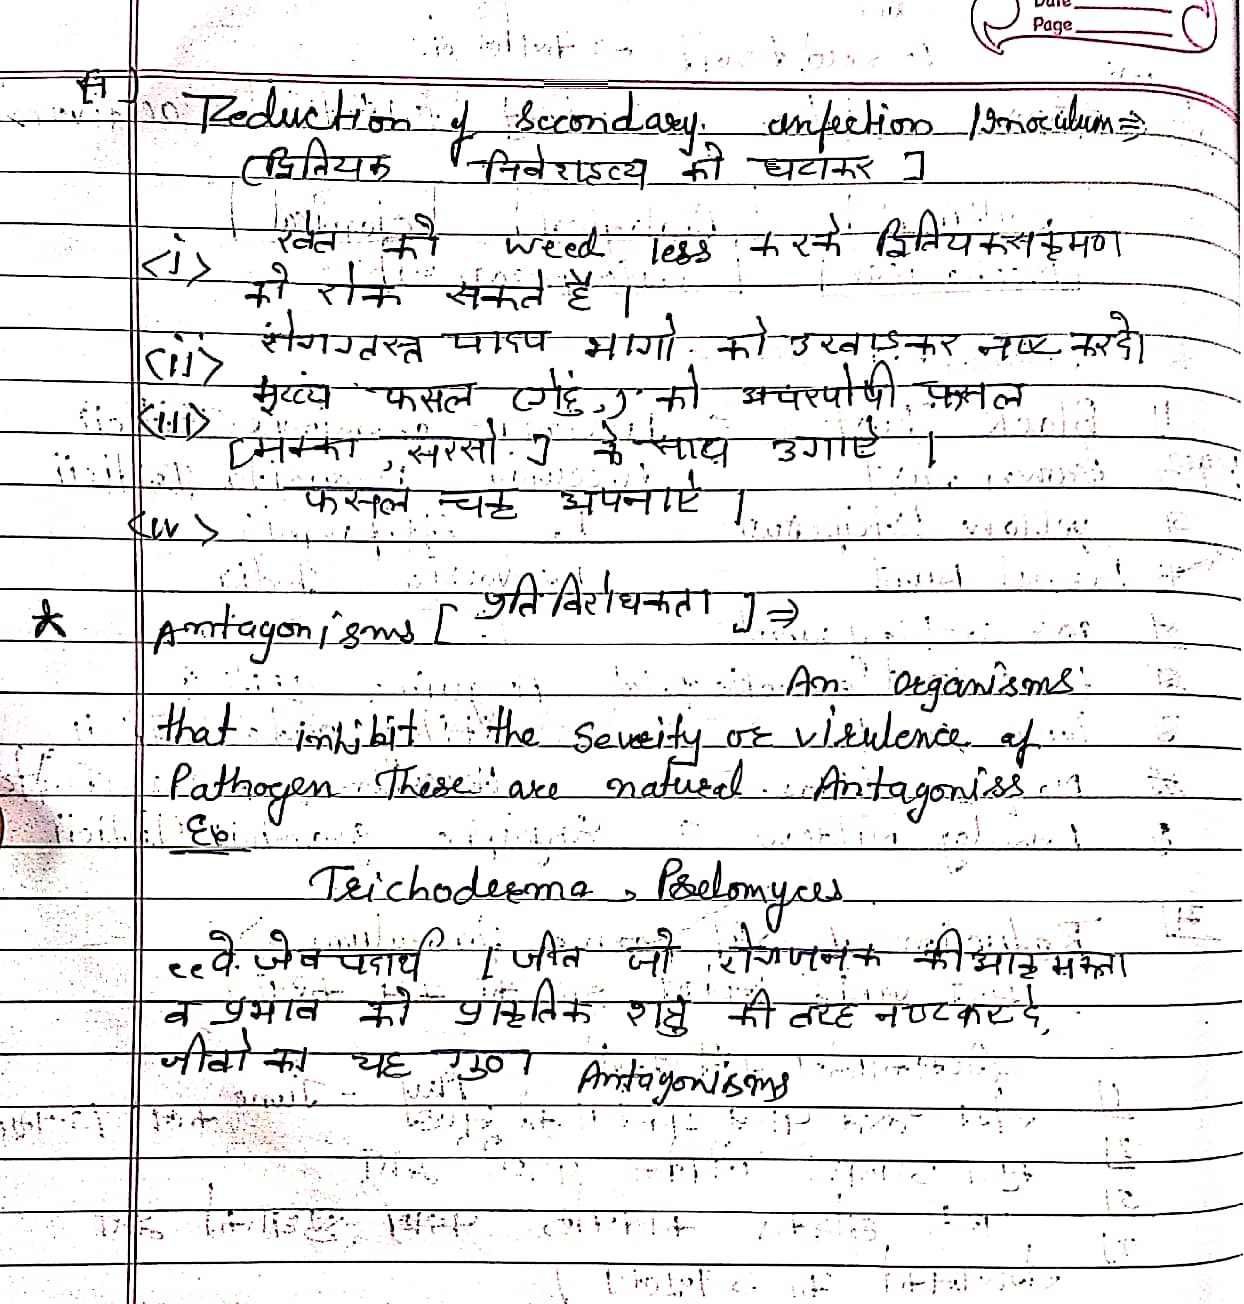 Date
Page
Reduction of Secondary infection / Inoculum ⇒
(द्वितियक निवेशद्रव्य को घटाकर ]
<i> खेत को weed less करके द्वितियक संक्रमण
को रोक सकते हैं ।
<ii> रोगग्रस्त पादप भागो को उखाड़कर नष्ट करदे।
<iii> मुख्य फसल (गेहुं) को अपरपोषी फसल
[मक्का, सरसो ] के साथ उगाऐ ।
<iv> फसल चक्र अपनाऐ ।
* Antagonisms [ प्रतिविरोधकता ] ⇒
An organisms
that inhibit the Seveity or virulence of
Pathogen These are natural Antagoniss
Ex:
Trichoderma, Paselomyces
"वे जैव पदार्थ / जीव जो रोगजनक की आक्रमकता
व प्रभाव को प्राकृतिक शत्रु की तरह नष्ट कर दे,
जीवो का यह गुण Antagonisms